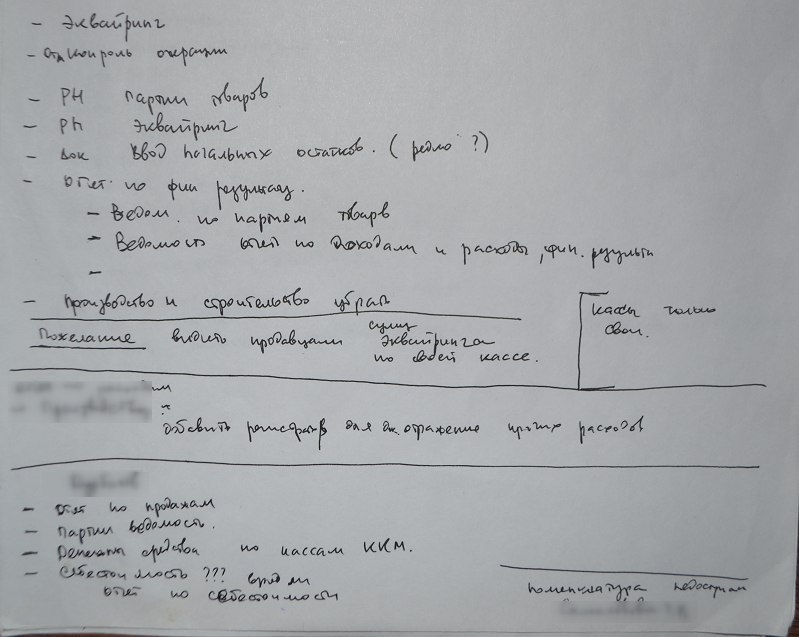 - Эквайринг
- контроль операции
- РН партии тваров
- РН Эквайринг
- Док Ввод начальных остатков. ( ?)
- Отчет по фин результату.
- Ведом. по партиям тварв
- Ведомость отчет по Доходами и расходы, фин. результ
-
- Производство и строительство убрать
Кассы только
свои.
Пожелание видеть продавцами сумму Эквайринга
по своей кассе.
Добавить регистратв для отражение прочих расходов
- отчет по продажам
- Партии ведомость.
- Денежны средства по кассам ККМ.
- Себестоимость ???
отчет по себестоимости
Номенклатура недоступн